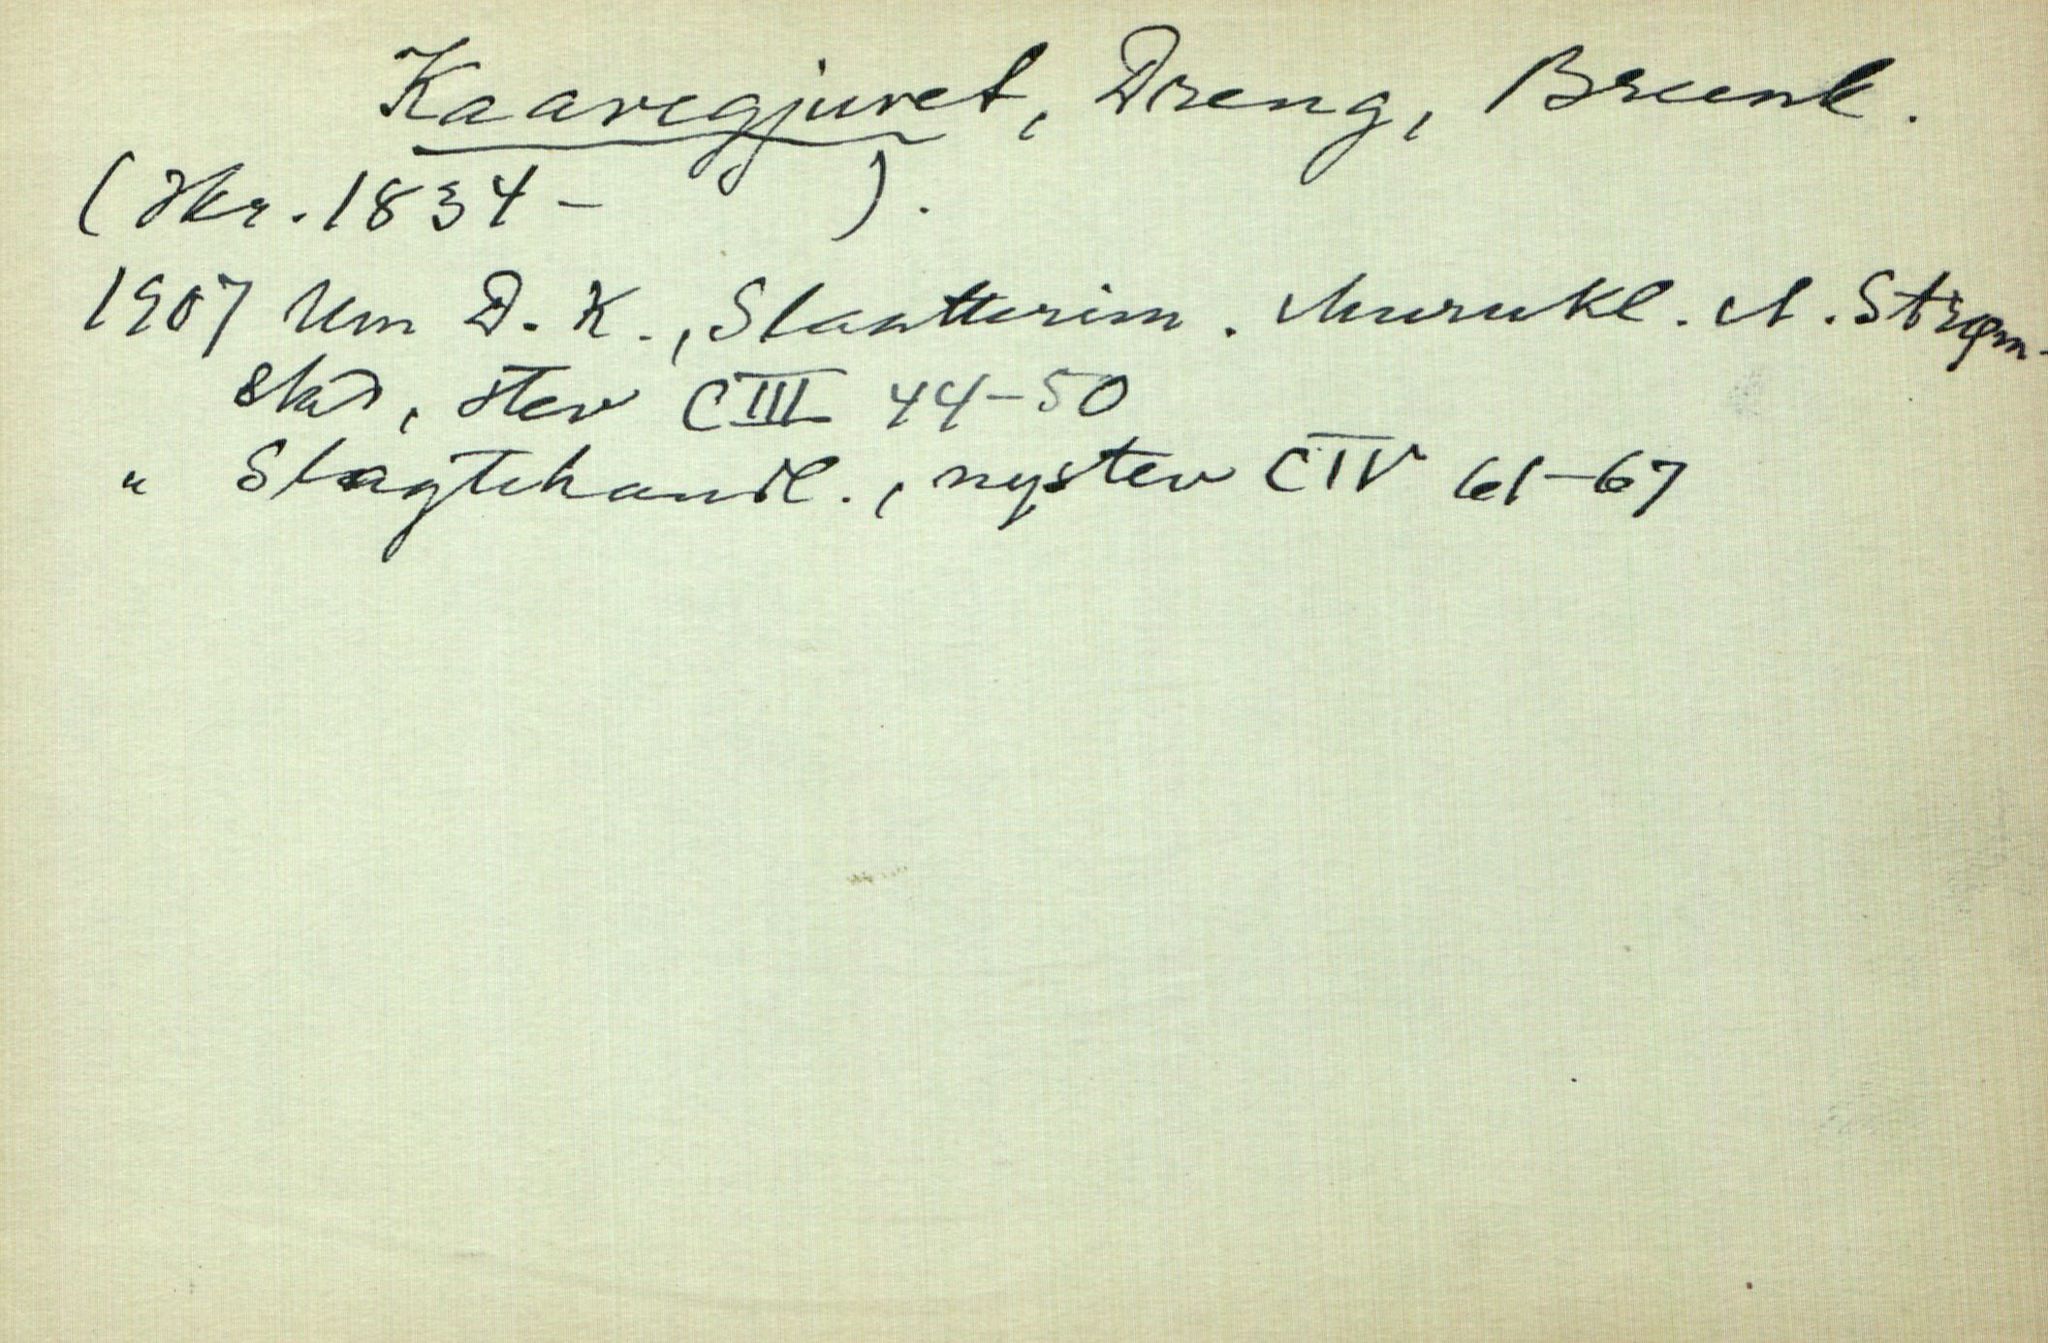 Kaavegjuvet, Dreng, Brunk.
(Jkr. 1834 - ).
1907 Um D. K., Slaatterim. Murukl. A. Strøm-
stad, stev CIII 44-50
" Slagtehandl., nystev CIV 61-67